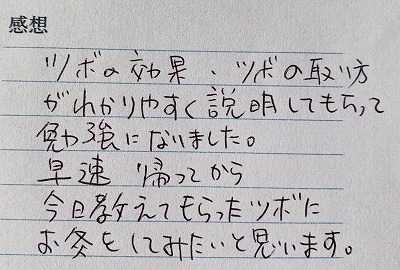 感想
ツボの効果・ツボの取り方
がわかりやすく説明してもらって
勉強になりました。
早速 帰ってから
今日教えてもらったツボに
お灸をしてみたいと思います。